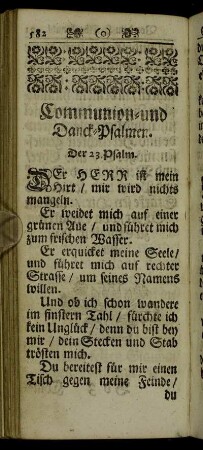 582 (o)
Communion-und
Danck-Psalmen.
Der 23. Psalm.
DEr HERR ist mein
Hirt / mir wird nichts
mangeln.
Er weidet mich auf einer
grünen Aue / und führet mich
zum frischen Wasser.
Er erquicket meine Seele /
und führet mich auf rechter
Strasse / um seines Namens
willen.
Und ob ich schon wandere
im finstern Tahl / fürchte ich
kein Unglück / denn du bist bey
mir / dein Stecken und Stab
trösten mich.
Du bereitest für mir einen
Tisch gegen meine Feinde /
du